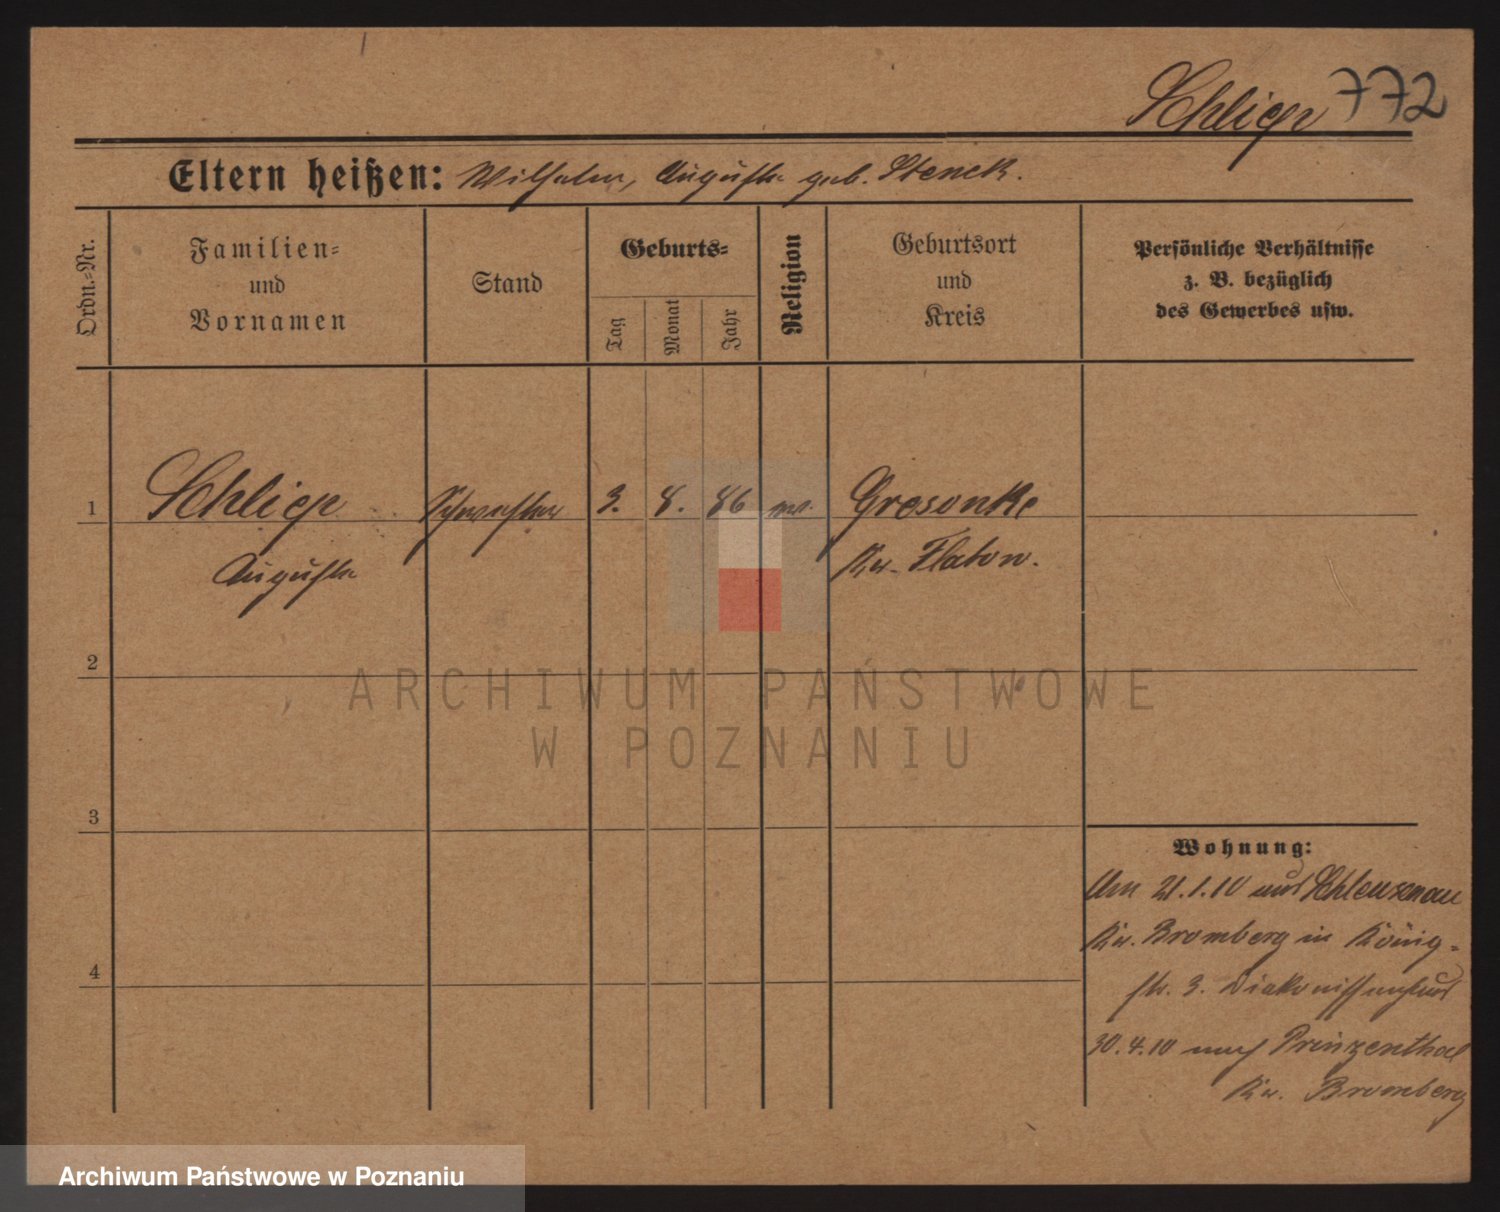 Schliep 772
Eltern heißen: Wilhelm, Auguste geb. Stenck.
Ordn.=Nr.
Familien=
und
Vornamen
Stand
Geburts=
Tag
Monat
Jahr
Religion
Geburtsort
und
Kreis
Persönliche Verhältnisse
z. B. bezüglich
des Gewerbes usw.
1 Schliep Schwester 3. 8. 86 ev. Gresonke
Auguste Kr. Flatow.
2
ARCHIWUM PAŃSTWOWE
W POZNANIU
3
Wohnung:
Am 21.1.10 aus Schleusenau
Kr. Bromberg in König-
4
str. 3. Diakonissenhaus
30.4.10 nach Prinzenthal
Kr. Bromberg
Archiwum Państwowe w Poznaniu